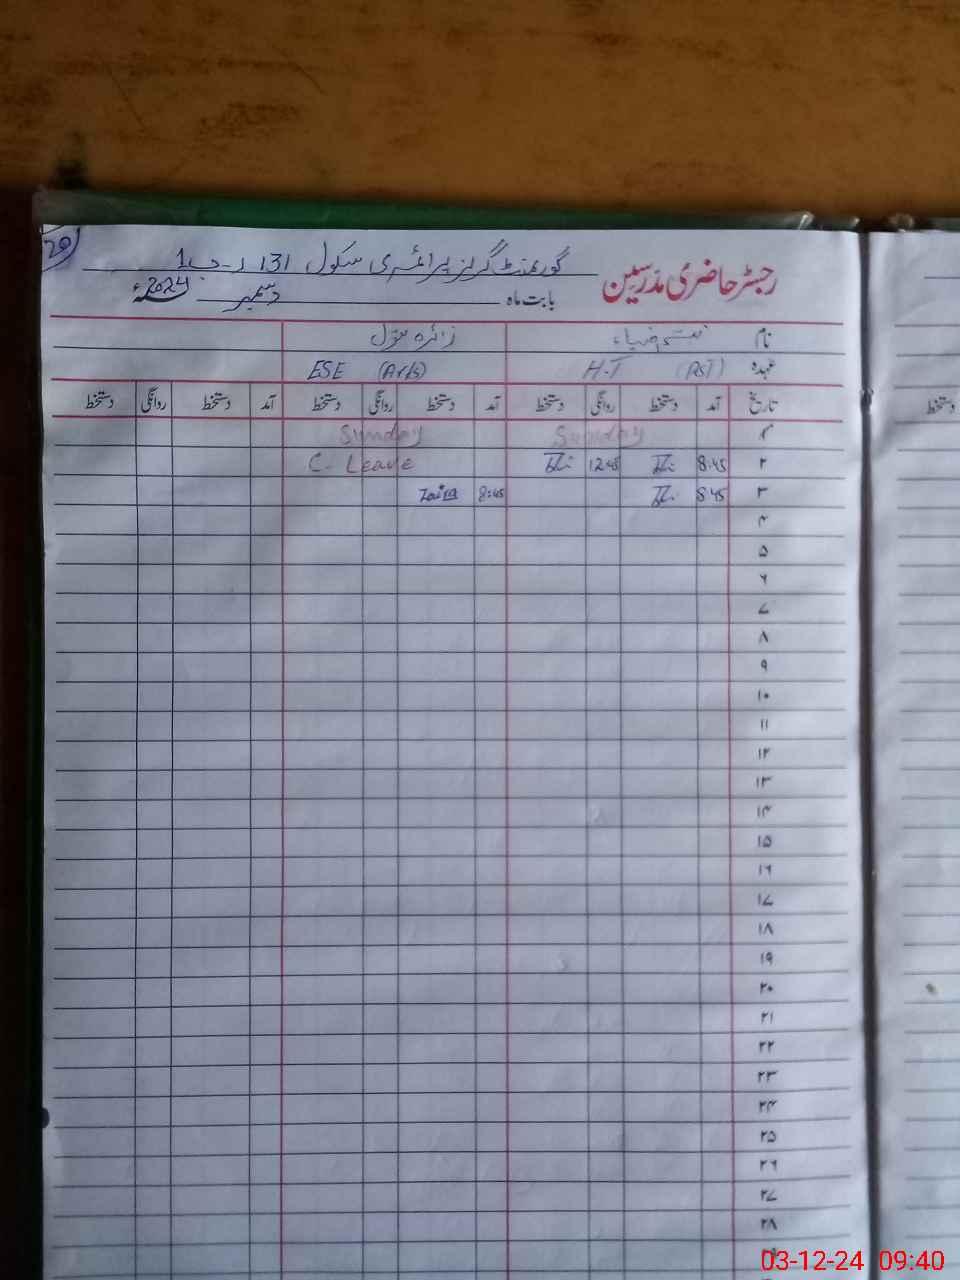 20
گورنمنٹ گرلز پرائمری سکول 131 ر-ب 1
رجسٹر حاضری مدرسین
بابت ماہ دسمبر 2024ء
نام ضیاء زائرہ بتول
عہدہ H.T (PST) ESE (Arts)
تاریخ آمد دستخط روانگی دستخط آمد دستخط روانگی دستخط آمد دستخط روانگی دستخط
۱ Sunday Sunday
۲ 8:45 12:45 C. Leave
۳ 8:45 8:45 Zaira
۴
۵
۶
۷
۸
۹
۱۰
۱۱
۱۲
۱۳
۱۴
۱۵
۱۶
۱۷
۱۸
۱۹
۲۰
۲۱
۲۲
۲۳
۲۴
۲۵
۲۶
۲۷
۲۸
دستخط
03-12-24 09:40